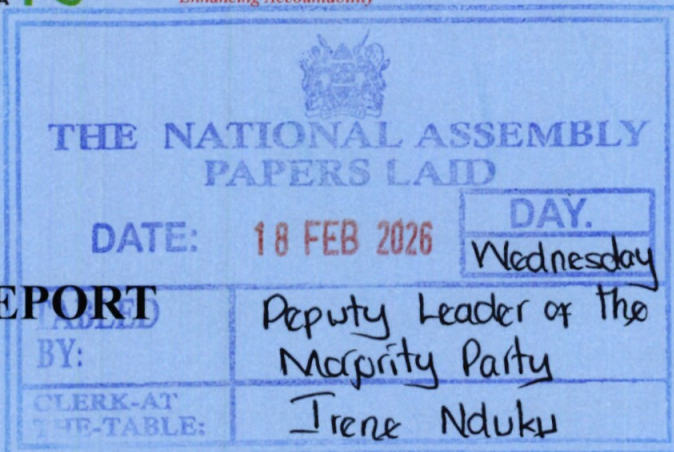 Enhancing Accountability
THE NATIONAL ASSEMBLY
PAPERS LAID
DATE: 18 FEB 2026
DAY.
Wednesday
EPORT
TABLED
BY:
Deputy Leader of the
Majority Party
CLERK-AT
THE-TABLE:
Irene Nduku